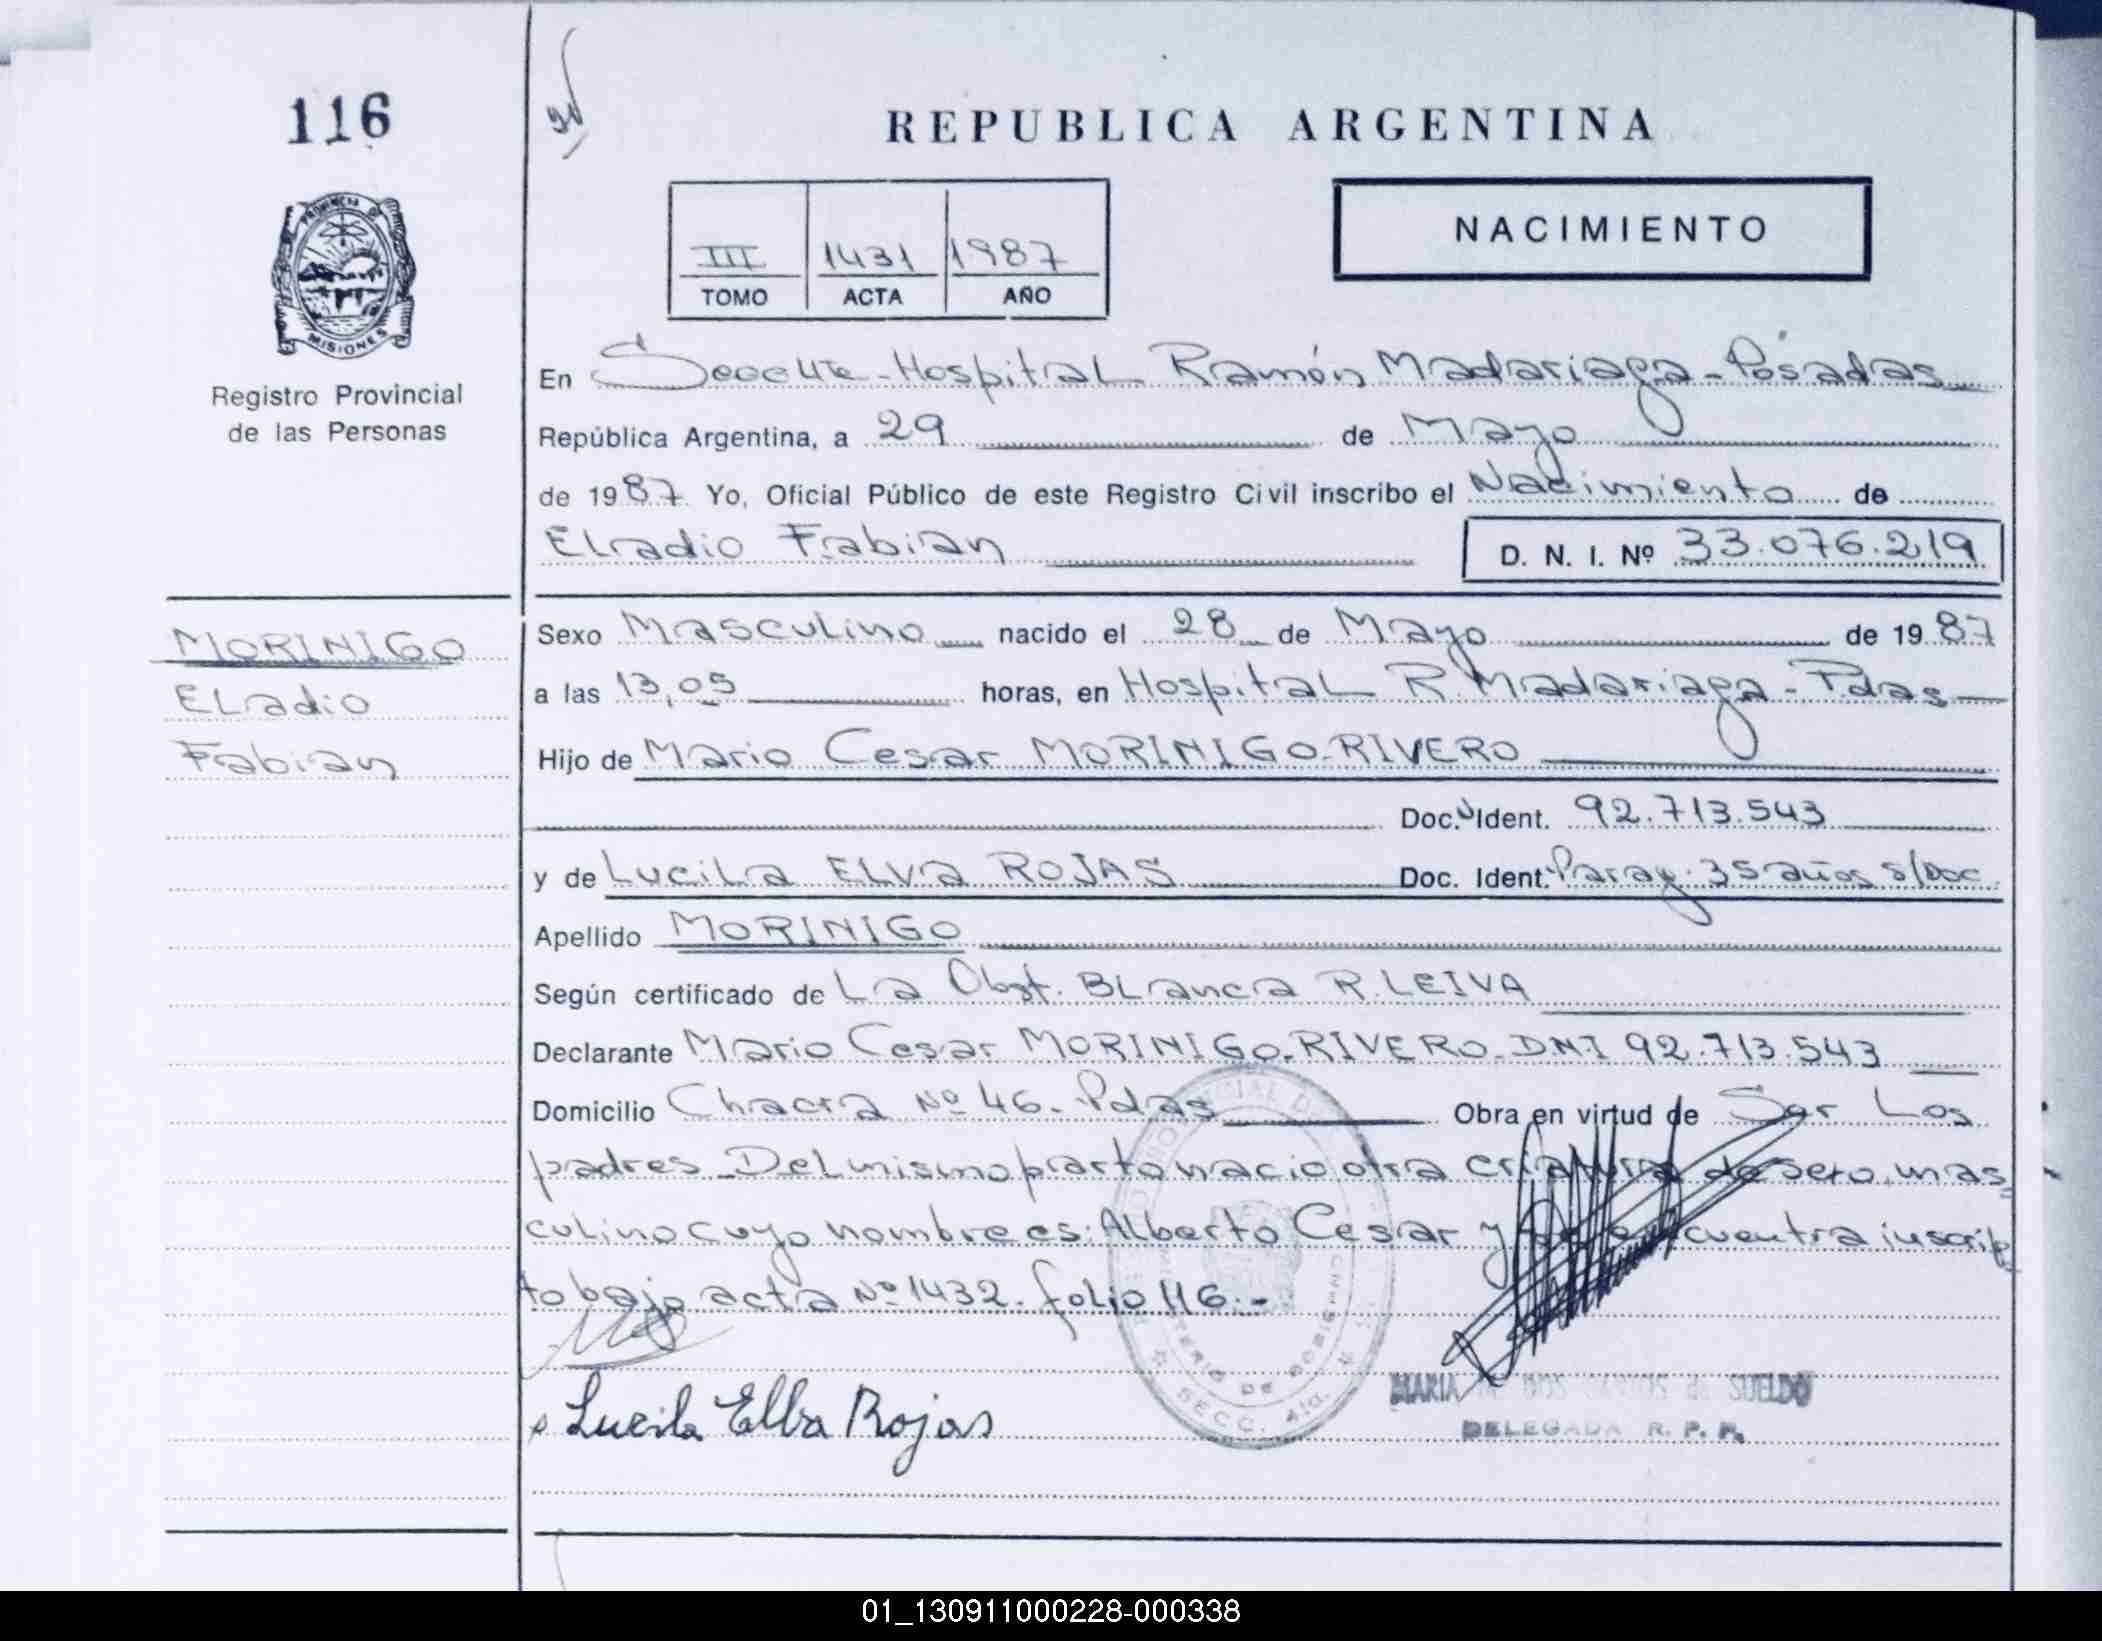 116
REPUBLICA ARGENTINA
PROVINCIA DE
MISIONES
NACIMIENTO
III 1431 1987
TOMO ACTA AÑO
Registro Provincial
de las Personas
En Hospital Ramón Madariaga - Posadas
República Argentina, a 29 de Mayo
de 1987. Yo, Oficial Público de este Registro Civil inscribo el Nacimiento de
Eladio Fabian D. N. I. Nº 33.076.219
MORINIGO
Eladio
Fabian
Sexo Masculino nacido el 28 de Mayo de 1987
a las 13,05 horas, en Hospital R. Madariaga - Pdas
Hijo de Mario Cesar MORINIGO-RIVERO
Doc. Ident. 92.713.543
y de Lucila ELVA ROJAS Doc. Ident. Paray. 35 años s/Doc
Apellido MORINIGO
Según certificado de La Obst. Blanca R. LEIVA
Declarante Mario Cesar MORINIGO-RIVERO-DNI 92.713.543
Domicilio Chacra Nº 46 - Pdas Obra en virtud de Ser Los
padres. Del mismo parto nacio otra criatura de sexo mas
culino cuyo nombre es: Alberto Cesar y se encuentra inscrip
to bajo acta Nº 1432. folio 116.-
Lucila Elba Rojas
MARIA DOS SANTOS de SUELDO
DELEGADA R. P. P.
01_130911000228-000338